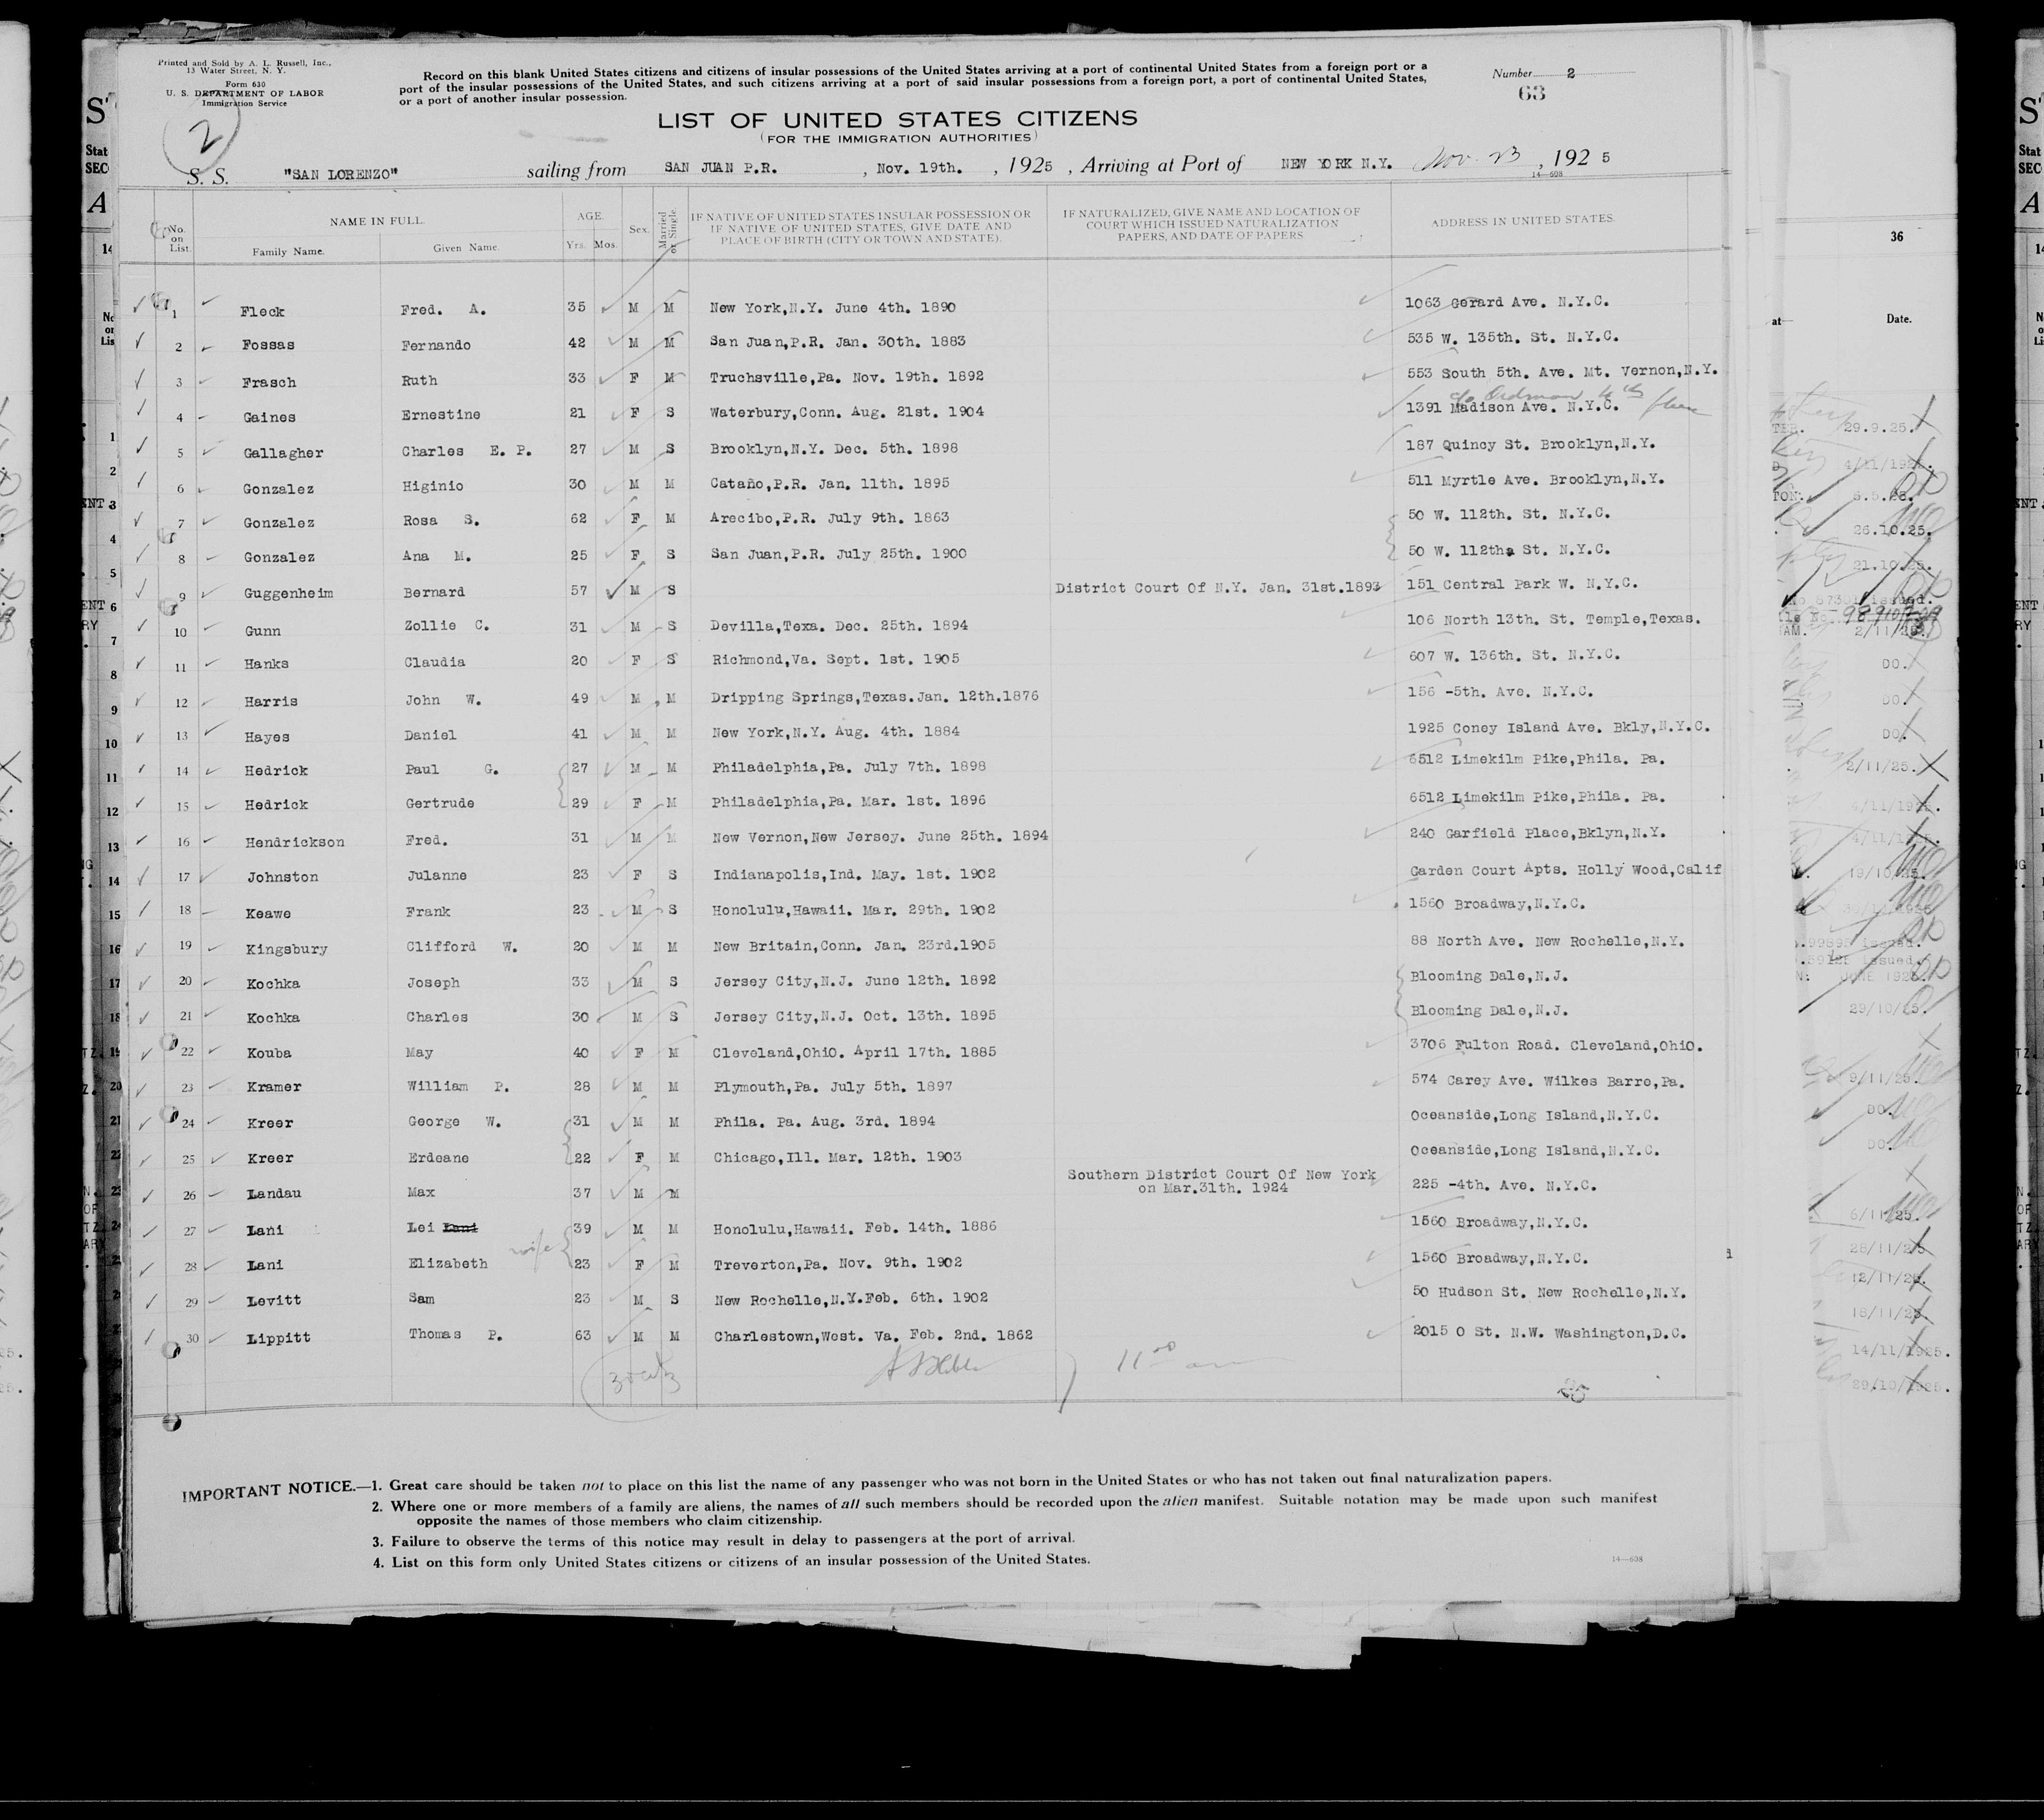 Printed and Sold by A. L. Russell, Inc.,
13 Water Street, N. Y.
Form 630
U. S. DEPARTMENT OF LABOR
Immigration Service
2
Record on this blank United States citizens and citizens of insular possessions of the United States arriving at a port of continental United States from a foreign port or a
port of the insular possessions of the United States, and such citizens arriving at a port of said insular possessions from a foreign port, a port of continental United States,
or a port of another insular possession.
Number 2
63
LIST OF UNITED STATES CITIZENS
(FOR THE IMMIGRATION AUTHORITIES)
S. S. "SAN LORENZO" sailing from SAN JUAN P.R. , Nov. 19th. , 1925 , Arriving at Port of NEW YORK N.Y. Nov. 23 , 1925
14—608
No. on List. NAME IN FULL. Family Name. Given Name. AGE. Yrs. Mos. Sex. Married or Single. IF NATIVE OF UNITED STATES INSULAR POSSESSION OR IF NATIVE OF UNITED STATES, GIVE DATE AND PLACE OF BIRTH (CITY OR TOWN AND STATE). IF NATURALIZED, GIVE NAME AND LOCATION OF COURT WHICH ISSUED NATURALIZATION PAPERS, AND DATE OF PAPERS. ADDRESS IN UNITED STATES.
1 Fleck Fred. A. 35 M M New York,N.Y. June 4th. 1890 1063 Gerard Ave. N.Y.C.
2 Fossas Fernando 42 M M San Juan,P.R. Jan. 30th. 1883 535 W. 135th. St. N.Y.C.
3 Frasch Ruth 33 F M Truchsville,Pa. Nov. 19th. 1892 553 South 5th. Ave. Mt. Vernon,N.Y.
4 Gaines Ernestine 21 F S Waterbury,Conn. Aug. 21st. 1904 1391 Madison Ave. N.Y.C.
5 Gallagher Charles E. P. 27 M S Brooklyn,N.Y. Dec. 5th. 1898 187 Quincy St. Brooklyn,N.Y.
6 Gonzalez Higinio 30 M M Cataño,P.R. Jan. 11th. 1895 511 Myrtle Ave. Brooklyn,N.Y.
7 Gonzalez Rosa S. 62 F M Arecibo,P.R. July 9th. 1863 50 W. 112th. St. N.Y.C.
8 Gonzalez Ana M. 25 F S San Juan,P.R. July 25th. 1900 50 W. 112tha St. N.Y.C.
9 Guggenheim Bernard 57 M S District Court Of N.Y. Jan. 31st.1893 151 Central Park W. N.Y.C.
10 Gunn Zollie C. 31 M S Devilla,Texa. Dec. 25th. 1894 106 North 13th. St. Temple,Texas.
11 Hanks Claudia 20 F S Richmond,Va. Sept. 1st. 1905 607 W. 136th. St. N.Y.C.
12 Harris John W. 49 M M Dripping Springs,Texas.Jan. 12th.1876 156 -5th. Ave. N.Y.C.
13 Hayes Daniel 41 M M New York,N.Y. Aug. 4th. 1884 1925 Coney Island Ave. Bkly,N.Y.C.
14 Hedrick Paul G. 27 M M Philadelphia,Pa. July 7th. 1898 6512 Limekilm Pike,Phila. Pa.
15 Hedrick Gertrude 29 F M Philadelphia,Pa. Mar. 1st. 1896 6512 Limekilm Pike,Phila. Pa.
16 Hendrickson Fred. 31 M M New Vernon,New Jersey. June 25th. 1894 240 Garfield Place,Bklyn,N.Y.
17 Johnston Julanne 23 F S Indianapolis,Ind. May. 1st. 1902 Garden Court Apts. Holly Wood,Calif
18 Keawe Frank 23 M S Honolulu,Hawaii. Mar. 29th. 1902 1560 Broadway,N.Y.C.
19 Kingsbury Clifford W. 20 M M New Britain,Conn. Jan. 23rd.1905 88 North Ave. New Rochelle,N.Y.
20 Kochka Joseph 33 M S Jersey City,N.J. June 12th. 1892 Blooming Dale,N.J.
21 Kochka Charles 30 M S Jersey City,N.J. Oct. 13th. 1895 Blooming Dale,N.J.
22 Kouba May 40 F M Cleveland,OhiO. April 17th. 1885 3706 Fulton Road. Cleveland,Ohio.
23 Kramer William P. 28 M M Plymouth,Pa. July 5th. 1897 574 Carey Ave. Wilkes Barre,Pa.
24 Kreer George W. 31 M M Phila. Pa. Aug. 3rd. 1894 Oceanside,Long Island,N.Y.C.
25 Kreer Erdeane 22 F M Chicago,Ill. Mar. 12th. 1903 Oceanside,Long Island,N.Y.C.
26 Landau Max 37 M M Southern District Court Of New York on Mar.31th. 1924 225 -4th. Ave. N.Y.C.
27 Lani Lei Lani 39 M M Honolulu,Hawaii. Feb. 14th. 1886 1560 Broadway,N.Y.C.
28 Lani Elizabeth wife 23 F M Treverton,Pa. Nov. 9th. 1902 1560 Broadway,N.Y.C.
29 Levitt Sam 23 M S New Rochelle,N.Y.Feb. 6th. 1902 50 Hudson St. New Rochelle,N.Y.
30 Lippitt Thomas P. 63 M M Charlestown,West. Va. Feb. 2nd. 1862 2015 O St. N.W. Washington,D.C.
IMPORTANT NOTICE.—1. Great care should be taken not to place on this list the name of any passenger who was not born in the United States or who has not taken out final naturalization papers.
2. Where one or more members of a family are aliens, the names of all such members should be recorded upon the alien manifest. Suitable notation may be made upon such manifest
opposite the names of those members who claim citizenship.
3. Failure to observe the terms of this notice may result in delay to passengers at the port of arrival.
4. List on this form only United States citizens or citizens of an insular possession of the United States.
14—608
36
Date.
29.9.25.
26.10.25.
2/11/25.
DO.
DO.
DO.
2/11/25.